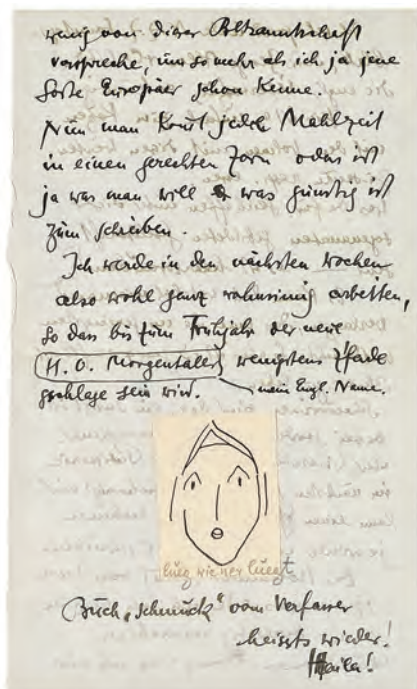 wenig von dieser Bekanntschaft
verspreche, um so mehr als ich ja jene
Sorte Europäer schon kenne.
Nun man kommt jede Mahlzeit
in einen gerechten Zorn oder ist
ja was man will was günstig ist
zum schreiben.
Ich werde in den nächsten Wochen
also wohl ganz wahnsinnig arbeiten,
so dass bis zum Frühjahr der neue
H. O. Morgenthaler wenigstens Pfade
geschlage sein wird. mein Engl. Name.
lueg wie ner luegt
Buch „schmuck" vom Verfasser
heissts wieder!